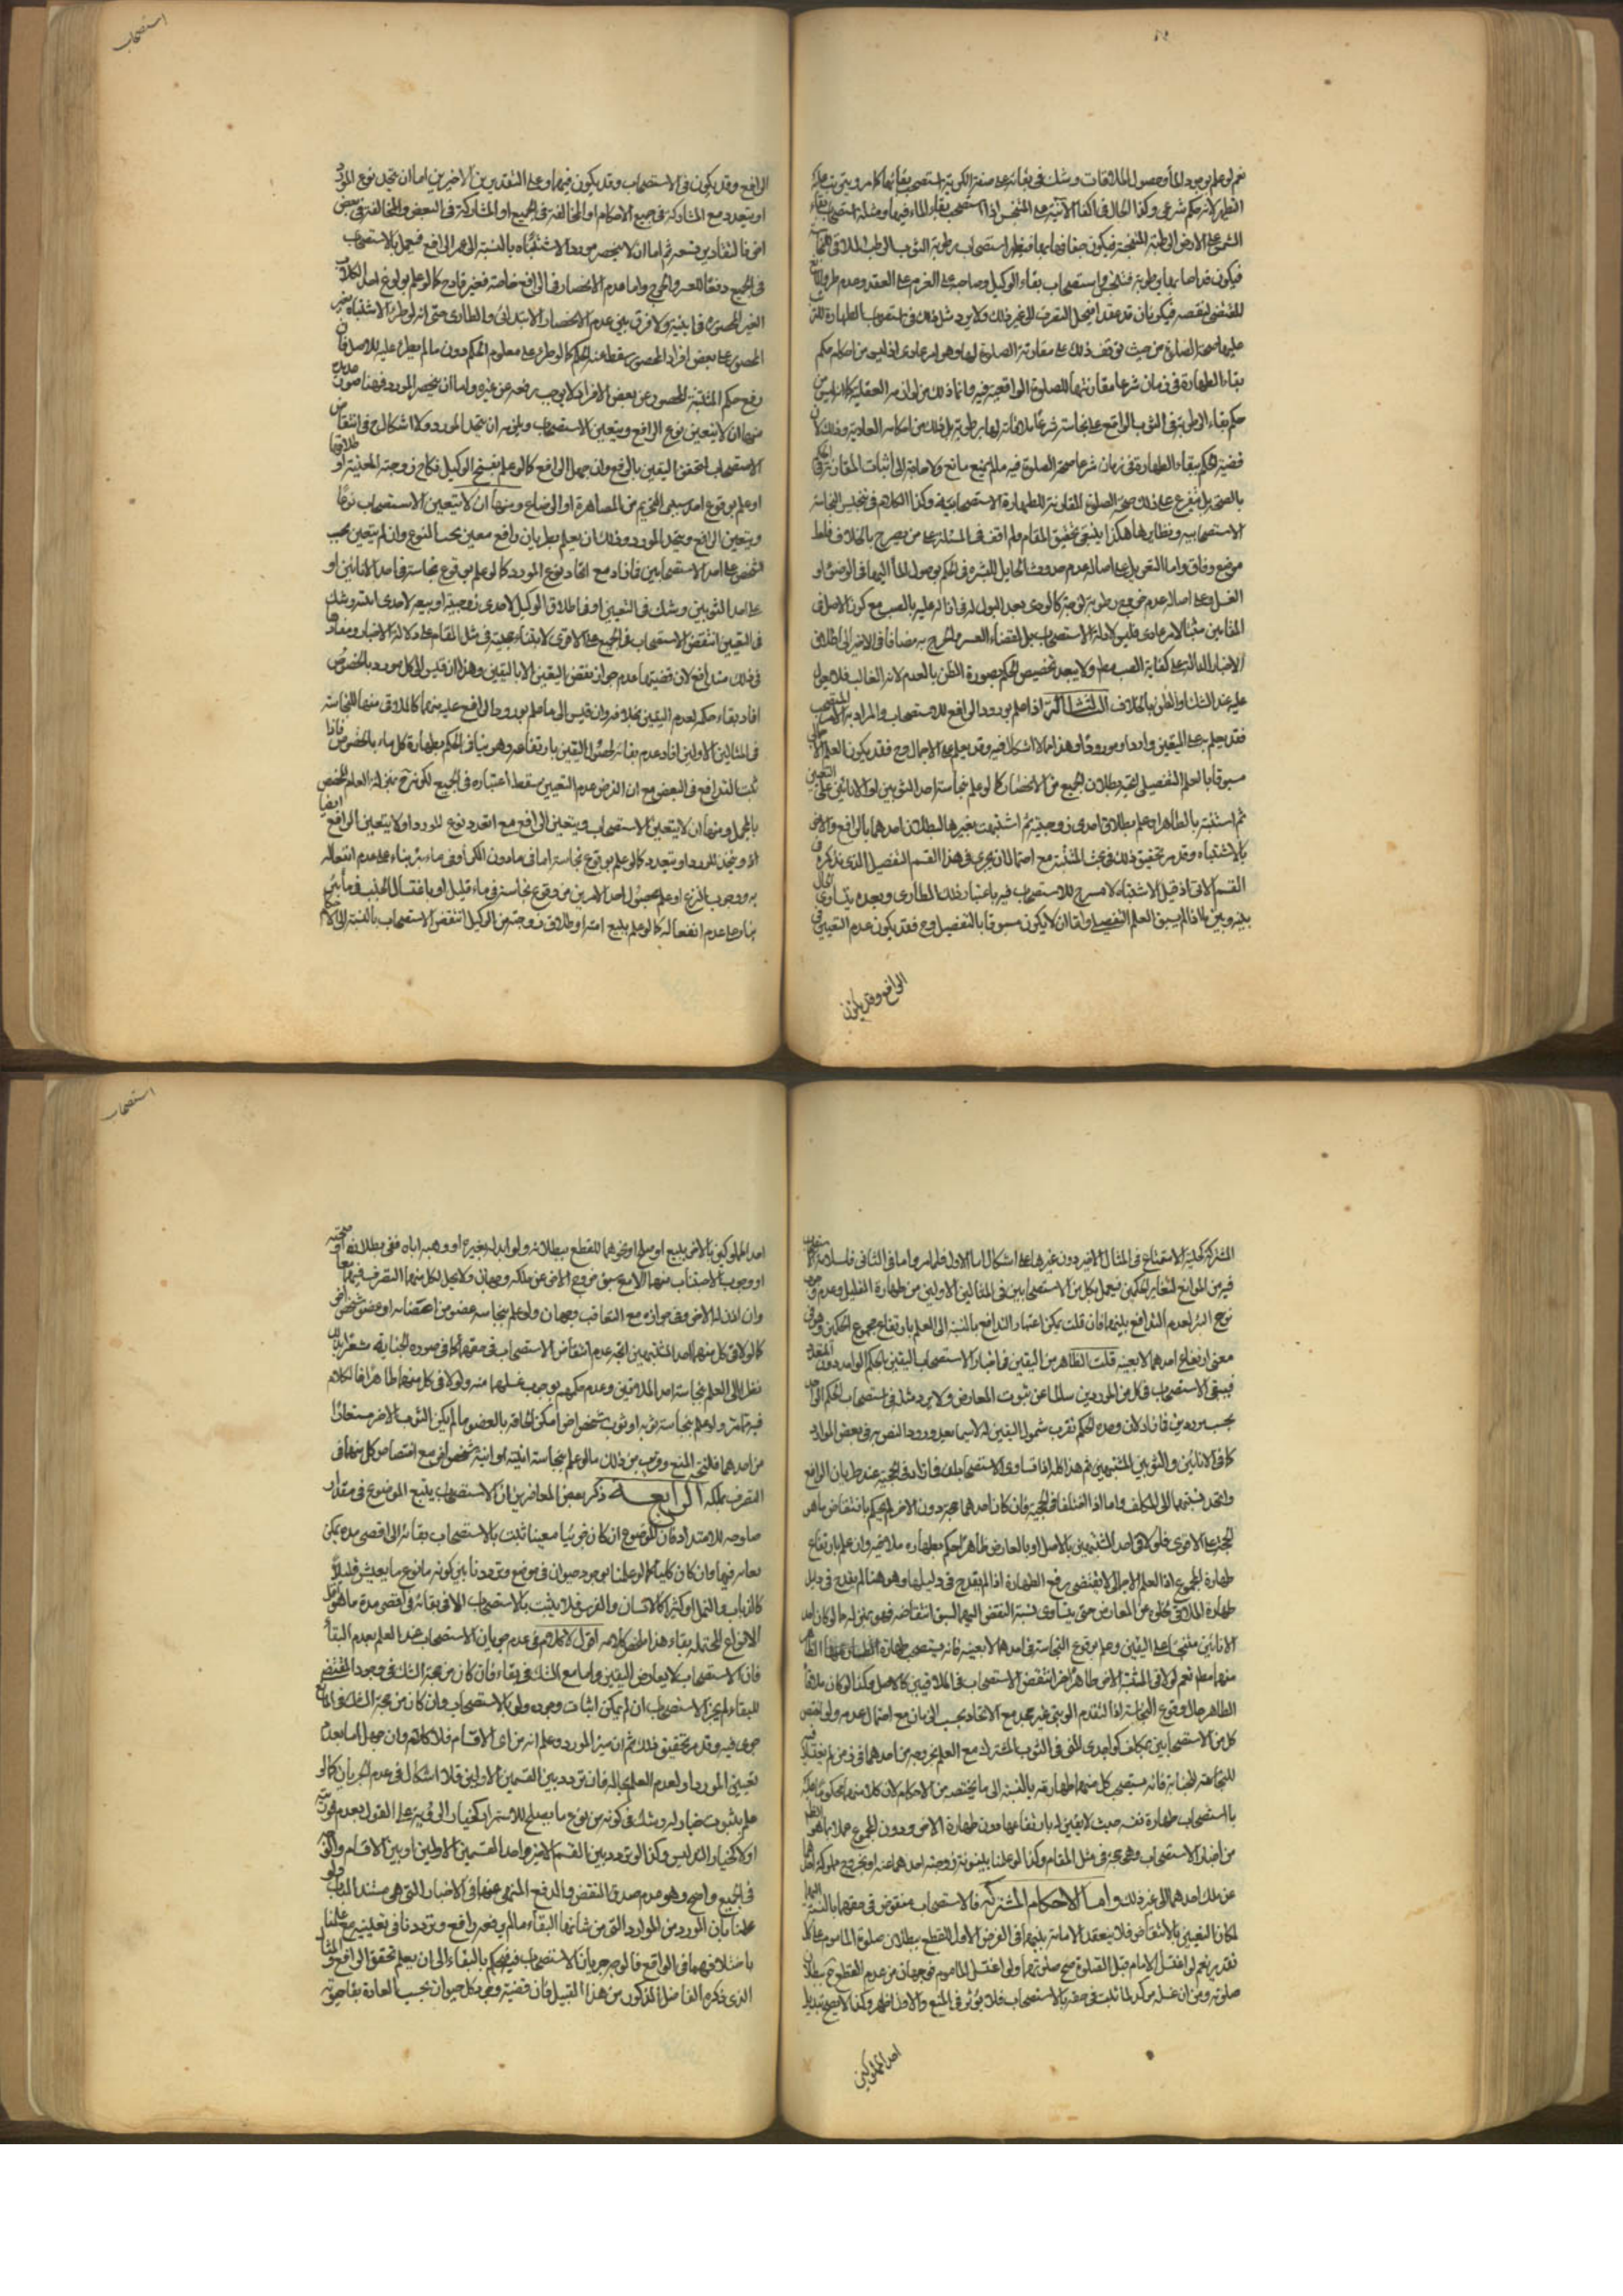 استصحاب
نعم لو علم بوجود الماء وحصول الملاقات وشك في بقائه على صفة الكرية استصحب بقائها كما مر ويترتب عليه
التطهير لأنه حكم شرعي وكذا الحال في اكفاء الآنية على المتنجس اذا استصحب بقاء الماء فيها ومثله استصحاب بقاء
الشمس على الارض الرطبة المتنجسة فيكون جفافها بها فيطهر استصحاب رطوبة الثوب الرطب الملاقي للنجاسة
فيكون قد اصابها برطوبة فتنجس واستصحاب بقاء الوكيل وصاحبه على العزم على العقد وعدم طرو المانع
المقتضي لنقصه فيكونان قد عقدا فيحل التصرف الى غير ذلك ولا يرد مثل ذلك في استصحاب الطهارة المترتب
عليها صحة الصلوة من حيث توقف ذلك على مقارنة الصلوة لها وهو امر عادي اذ ليس من احكام حكم
بقاء الطهارة في زمان شرعا مقارنتها للصلوة الواقعية فيه وانما ذلك من لوازمه العقلية كما انه ليس من
حكم بقاء الرطوبة في الثوب الواقع على نجاسة شرعا ملاقاته لها برطوبة بل ذلك من احكامه العادية وذلك لان
قضية الحكم ببقاء الطهارة في زمان شرعا صحة الصلوة فيه ما لم يمنع مانع ولا حاجة الى اثبات المقارنة في الحكم
بالصحة بل يتفرع على ذلك صحة الصلوة المقارنة للطهارة الاستصحابية وكذا الكلام في تنجيس النجاسة
الاستصحابية ونظايرها هكذا ينبغي تحقيق المقام ولم اقف في المسئلة على من يصرح بالخلاف فلعله
موضع وفاق واما التعويل على اصالة عدم حدوث الحايل للبشرة في الحكم بوصول الماء اليها في الوضوء او
الغسل وعلى اصالة عدم خروج رطوبة لزجة كالودي بعد البول في ازالته عليه بالصب مع كون الاصل في
المقامين مثبتا لامر عادي فليس لادلة الاستصحاب بل لقضاء العسر والحرج به مضافا في الاخير الى اطلاق
الاخبار الدالة على كفاية الصب مطلقا ولا يبعد تخصيص الحكم بصورة الظن بالعدم لانه الغالب فلا يعول
عليه عند الشك او الظن بالخلاف الثالثة اذا علم بورود الرافع للاستصحاب والمراد به الامر المستصحب
فقد يعلم به على اليقين واردا ومورودا وهذا مما لا اشكال فيه وقد يعلم به على الاجمال وح فقد يكون العلم الاجمالي
مسبوقا بالعلم التفصيلي ببطلان الجميع مع الانحصار كما لو علم نجاسة احد الثوبين او الانائين على التعيين
ثم اشتبه بالطاهر او علم بطلاق احدى زوجتيه ثم اشتبهت بغيرها لبطلان احدهما بالرافع والاخر
بالاشتباه وقد مر تحقيق ذلك في بحث المشتبه مع احتمال ان يجري في هذا القسم التفصيل الذي نذكره في
القسم الآتي اذ قبل الاشتباه لا مسرح للاستصحاب فيه باعتبار ذلك الطاري وبعده يتساوى الحال
بينه وبين ما اذا لم يسبق العلم التفصيلي واما ان لا يكون مسبوقا بالتفصيل وح فقد يكون عدم التعيين في
الرافع وقد يكون
الرافع وقد يكون في الاستصحاب وقد يكون فيهما وعلى التقديرين الاخيرين اما ان يتحد نوع المورد
او يتعدد مع المشاركة في جميع الاحكام او المخالفة في الجميع او المشاركة في البعض والمخالفة في بعض
اخر فالتقادير تسعة ثم اما ان لا ينحصر مورد الاشتباه بالنسبة الى غير الرافع فيعمل بالاستصحاب
في الجميع دفعا للعسر والحرج واما عدم الانحصار في الرافع خاصة فغير قادح كما لو علم بولوغ احد الكلاب
الغير المحصورة في آنية ولا فرق بين عدم الانحصار الابتدائي والطاري حتى انه لو طرء الاشتباه بغير
المحصور على بعض افراد المحصور سقط عنه الحكم كما لو طرء على معلوم الحكم دون ما لم يطرء عليه للاصل فان
رفع حكم المشتبه المحصور عن بعض الافراد لا يوجب رفعه عن غيره واما ان ينحصر المورد فهنا صور عديدة
منها ان لا يتعين نوع الرافع ويتعين الاستصحاب ويلزمه ان يتحد المورد ولا اشكال ح في انتقاض
الاستصحاب لتحقق اليقين بالرافع وان جهل الرافع كما لو علم بفسخ الوكيل نكاح زوجته المعينة او طلاقها
او علم بوقوع احد سببي التحريم من المصاهرة او الرضاع ومنها ان لا يتعين الاستصحاب نوعا
ويتعين الرافع ويتحد المورد وذلك ان يعلم بطريان رافع معين بحسب النوع وان لم يتعين بحسب
الشخص على احد الاستصحابين فازاد مع اتحاد نوع المورد كما لو علم بوقوع نجاسة في احد الانائين او
على احد الثوبين وشك في التعيين او في اطلاق الوكيل لاحدى زوجتيه او بيعه لاحدى امتيه وشك
في التعيين انتقض الاستصحاب في الجميع على الاقوى لابتناء حجيته في مثل المقام على دلالة الاخبار ومفادها
في ذلك متدافع لان قضيتها عدم جواز نقض اليقين الا باليقين وهذا ان قيس الى كل مورد بالخصوص
افاد بقاء حكمه لعدم اليقين بخلافه وان قيس الى ما علم بورود الرافع عليه منهما كالملاقي منهما للنجاسة
في المثالين الاولين افاد عدم بقائه لحصول اليقين بارتفاعه وهو ينافي الحكم بطهارة كل ماء بالخصوص فاذا
ثبت التدافع في البعض مع ان الفرض عدم التعيين سقط اعتباره في الجميع لكونه ح بمنزلة العام المخصص
بالمجمل ومنها ان لا يتعين الاستصحاب ويتعين الرافع مع تعدد نوع المورد او لا يتعين الرافع ايضا
او يتحد المورد او يتعدد كما لو علم بوقوع نجاسة اما في ما دون الكر او في ماء بئر بناء على عدم انفعاله
به ووجوب النزح او علم بحصول احد الامرين من وقوع نجاسة في ماء قليل او باغتسال الجنب في ماء بئر
بناء على عدم انفعاله كما لو علم ببيع امته او طلاق زوجته من الوكيل انتقض الاستصحاب بالنسبة الى الاحكام
استصحاب
المشتركة كحلية الاستمتاع في المثال الاخير دون غيرها على اشكال اما الاول فلما مر واما في الثاني فلسلامة
فيه من الموانع لتغاير الحكمين فيعمل بكل من الاستصحابين في المثالين الاولين من طهارة القليل وعدم وجوب
نزح البئر لعدم التدافع بينهما فان قلت يمكن اعتبار التدافع بالنسبة الى العلم بارتفاع مجموع الحكمين وهو في
معنى ارتفاع احدهما لا بعينه قلت الظاهر من اليقين في اخبار الاستصحاب اليقين بالحكم الواحد دون المتعدد
فيبقى الاستصحاب في كل من الموردين سالما عن ثبوت المعارض ولا يرد مثله في استصحاب الحكم الواحد
بحسب موردين فازاد لان وحدة الحكم تقرب شمول اليقين له لا سيما بعد ورود النص به في بعض الموارد
كما في الانائين والثوبين المشتبهين ثم هذا كله اذا تساوى الاستصحابان فازاد في الحجية عند طريان الرافع
واتحد نسبتهما الى المكلف واما اذا اختلفا في الحجية فان كان احدهما حجة دون الاخر لم يحكم بانتقاض ما هو
الحجة على الاقوى فلو لاقى احد المشتبهين بالاصل او بالعارض طاهرا حكم بطهارة ملاقيه وان علم بارتفاع
طهارة المجموع اذ العلم الاجمالي لا يقتضي رفع الطهارة اذا لم يقدح في دليلها وهو هنا لم يقدح في دليل
طهارة الملاقي لخلوه عن المعارض حتى يتساوى نسبة النقض اليهما لسبق انتقاضه فهو بمنزلة ما لو كان احد
الانائين متنجسا على اليقين وعلم بوقوع النجاسة في احدهما لا بعينه فانه يستصحب طهارة الطاهر
منهما مطلقا نعم لو لاقى المشتبه الاخر طاهرا اخر انتقض الاستصحاب في الملاقيين كالاصل وكذا لو كان ملاقيا
الطاهر حال وقوع النجاسة اذ التقدم الرتبي غير مجد مع الاتحاد بحسب الزمان مع احتمال عدمه ولو اختص
كل من الاستصحابين بمكلف كواجدي المني في الثوب المشترك مع العلم بخروجه من احدهما
للجنابة فانه يستصحب كل منهما طهارته بالنسبة الى ما يختص به من الاحكام لان كلا منهما محكوم عليه
باستصحاب طهارة نفسه حيث لا يقين له بارتفاعها دون طهارة الاخر ودون المجموع عملا بما هو الظاهر
من اخبار الاستصحاب وهي حجة في مثل المقام وكذا لو علمنا ببينونة زوجة احدهما عنه او بخروج مملوكة احدهما
عن ملك احدهما الى غير ذلك واما الاحكام المشتركة فالاستصحاب منقوض في حقهما بالنسبة اليها
لمكان اليقين بالانتقاض فلا ينعقد الامامة بينهما في الفرض الاول للقطع ببطلان صلوة الماموم على كل
تقدير نعم لو اغتسل الامام قبل الصلوة صح صلوتهما ولو اغتسل الماموم فوجهان من عدم القطع ح ببطلان
صلوته ومن ان غسله مؤكد لما ثبت في حقه بالاستصحاب فلا يؤثر في المنع والاول اظهر وكذا لا يصح تبديل
احد المملوكين
احد المملوكين بالاخر ببيع او صلح او نحوهما للقطع ببطلانه ولو ابدله بغيره او وهبه اياه ففي بطلانه او صحته
او وجوب الاجتناب منهما الا مع سبق خروج الاخر عن ملكه وجهان ولا يحل لكل منهما التصرف فيهما معا
وان اذن له الاخر وفي جوازه مع التعاقب وجهان ولو علم بنجاسة عضو من اعضائه او عضو شخص اخر
كما لو لاقى كل منهما احد المشتبهين اتجه عدم انتقاض الاستصحاب في حقهما كما في صورة الجنابة
نظرا الى العلم بنجاسة احد الملاقيين وعدم حكمهم بوجوب غسلهما منه ولو لاقى كل منهما طاهرا فالكلام
فيه ما مر ولو علم بنجاسة ثوبه او ثوب شخص اخر امكن الحاقه بالعضو ما لم يكن الثوب الاخر مستعارا
من احدهما فلنتجه المنع وقريب من ذلك ما لو علم بنجاسة آنيته او آنية شخص اخر مع اختصاص كل منهما في
التصرف بملكه الرابعة ذكر بعض المعاصرين ان الاستصحاب يتبع الموضوع في مقدار
صلوحه للامتداد فان الموضوع ان كان جزئيا معينا ثبت بالاستصحاب بقائه الى اقصى مدة يمكن
بقائه فيها وان كان كليا كما لو علمنا بوجود حيوان في موضع وترددنا بين كونه من نوع ما يعيش قليلا
كالذباب والنمل او كثيرا كالانسان والفرس فلا يثبت بالاستصحاب الا في بقائه في اقصى مدة ما هو اقل
الانواع المحتملة بقاء هذا ملخص كلامه اقول لا كلام في عدم جريان الاستصحاب عند العلم بعدم البقاء
فان الاستصحاب لا يعارض اليقين واما مع الشك في بقائه فان كان من جهة الشك في وجود المقتضي
للبقاء لم يجز الاستصحاب ان لم يمكن اثبات وجوده ولو بالاستصحاب وان كان من جهة الشك في المانع
جرى فيه وقد مر تحقيق ذلك ثم ان ميز المورد وعلم انه من اي الاقسام فلا كلام وان جهل اما بعدم
تعيين المورد او لعدم العلم بحاله فان تردد بين القسمين الاولين فلا اشكال في عدم الجريان كما لو
علم بثبوت خيار له وشك في كونه من نوع ما يصلح للاستمرار كخيار الرؤية على القول بعدم فوريته
او لا كخيار التدليس وكذا لو تردد بين القسم الاخير واحد القسمين الاولين او بين الاقسام والوجه
في الجميع واضح وهو عدم صدق النقض والدفع المنهي عنهما في الاخبار التي هي مستند الباب ولو
علمنا بان المورد من الموارد التي من شانها البقاء ما لم يدفعه رافع وترددنا في تعيينه مع علمنا
باختلافهما في الواقع فالوجه جريان الاستصحاب فيحكم بالبقاء الى ان يعلم تحقق الرافع والمثال
الذي ذكره الفاضل المذكور من هذا القبيل فان قضية وجود كل حيوان بحسب العادة بقاء حيوته